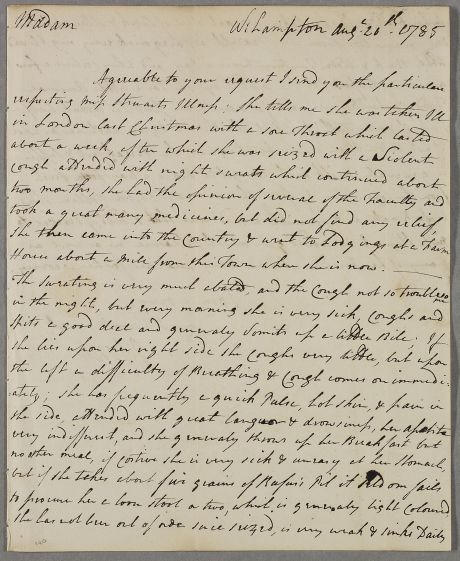 Madam
W:hampton Augt. 20th. 1785
Agreeable to your request I send you the particulars
respecting miss Stewarts Illness. She tells me she was taken Ill
in London last Christmas with a sore Throat which lasted
about a week, after which she was seized with a Violent
Cough attended with night sweats which continued about
two months, she had the opinion of several of the Faculty and
took a great many medicines, but did not find any relief,
She then came into the Country & went to Lodgings at a Farm
House about a mile from this Town where she is now.
The sweating is very much abated and the Cough not so troublesome
in the night, but every morning she is very sick, Coughs and
spits a good deal and generaly Vomits up a little Bile; If
she lies upon her right side she Coughs very little, but upon
the left a difficulty of Breathing & Cough comes on immedi-
ately; she has frequently a quick Pulse, hot skin, & pain in
the side, attended with great languor & drowsiness, her apetite
very indiffrent, and she generaly throws up her Breakfast but
no other meal, if costive she is very sick & uneasy at her Stomach,
but if she takes about five grains of Rufus's Pil it seldom fails
to procure her a loose stool or two, which is generaly light coloured
She has not been out of order since seized, is very weak & sinks Daily